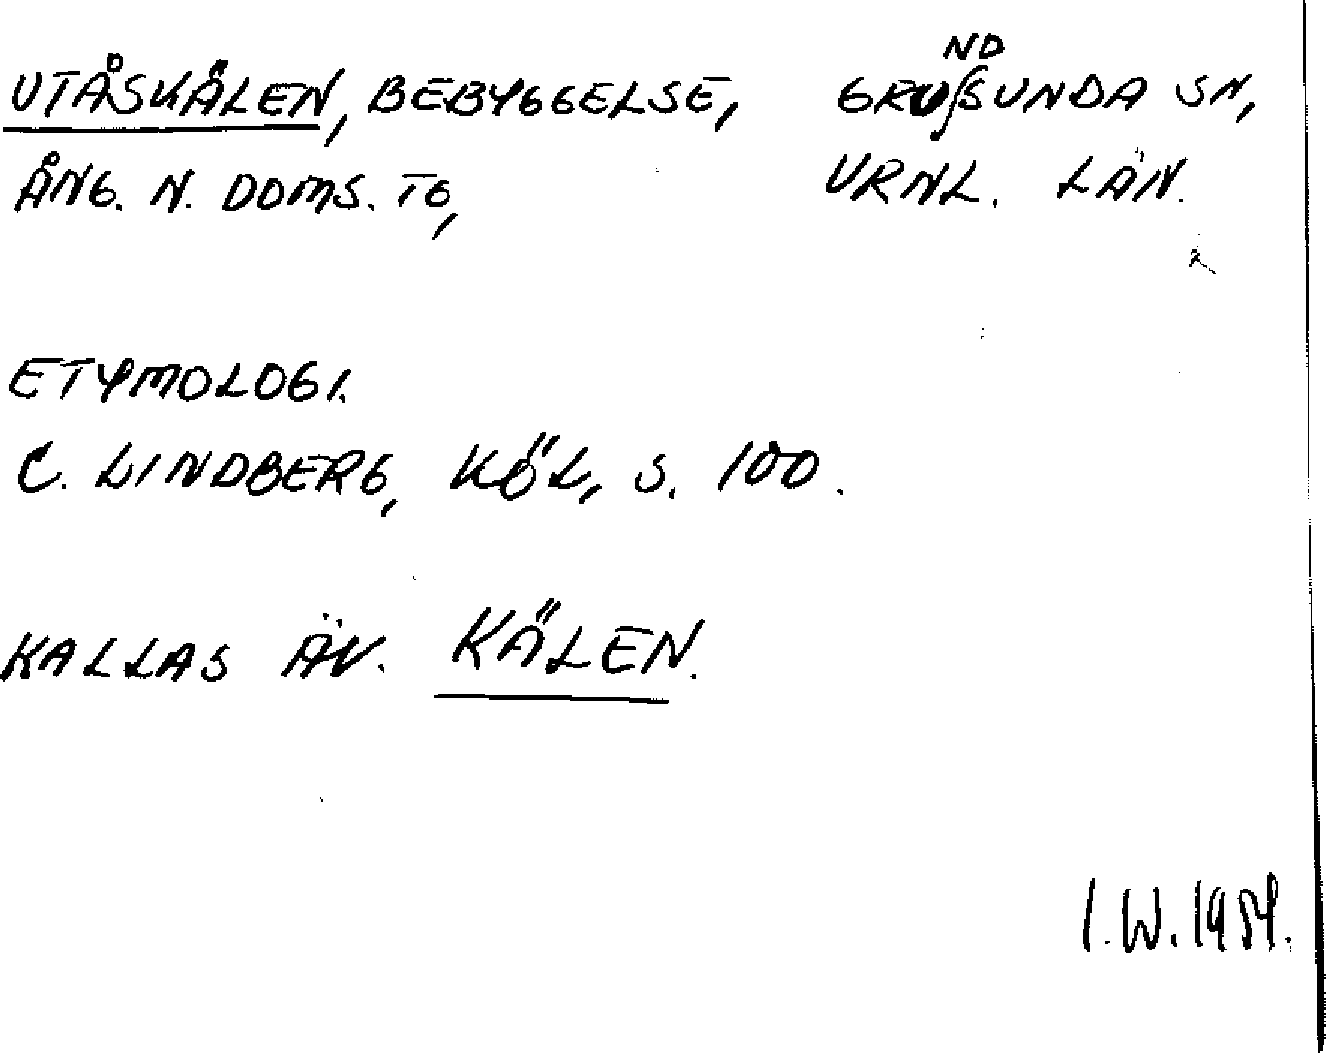 UTÅSKÄLEN, BEBYGGELSE, GRUNDSUNDA SN,
ÅNG. N. DOMS. TG, VRNL. LÄN.
ETYMOLOGI.
C. LINDBERG, KÖL, S. 100.
KALLAS ÄV. KÄLEN.
I.W. 1954.